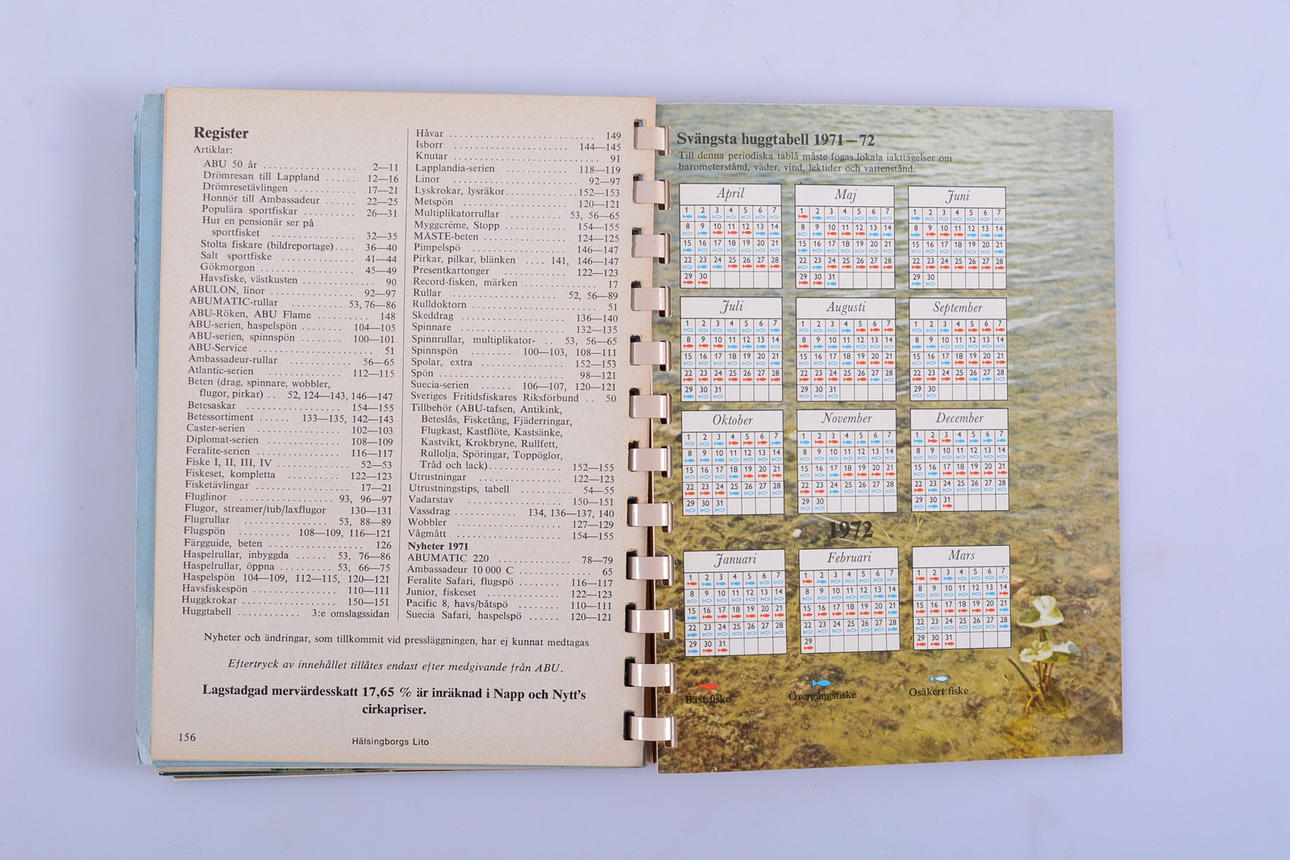 Register
Artiklar:
ABU 50 år .......... 2—11
Drömresan till Lappland ...... 12—16
Drömresetävlingen ...... 17—21
Honnör till Ambassadeur ...... 22—25
Populära sportfiskar ...... 26—31
Hur en pensionär ser på
sportfisket ...... 32—35
Stolta fiskare (bildreportage).... 36—40
Salt sportfiske ...... 41—44
Gökmorgon ...... 45—49
Havsfiske, västkusten ...... 90
ABULON, linor ...... 92—97
ABUMATIC-rullar ...... 53, 76—86
ABU-Röken, ABU Flame ...... 148
ABU-serien, haspelspön ...... 104—105
ABU-serien, spinnspön ...... 100—101
ABU-Service ...... 51
Ambassadeur-rullar ...... 56—65
Atlantic-serien ...... 112—115
Beten (drag, spinnare, wobbler,
flugor, pirkar) .. 52, 124—143, 146—147
Betesaskar ...... 154—155
Betessortiment ...... 133—135, 142—143
Caster-serien ...... 102—103
Diplomat-serien ...... 108—109
Feralite-serien ...... 116—117
Fiske I, II, III, IV ...... 52—53
Fiskeset, kompletta ...... 122—123
Fisketävlingar ...... 17—21
Fluglinor ...... 93, 96—97
Flugor, streamer/tub/laxflugor 130—131
Flugrullar ...... 53, 88—89
Flugspön ...... 108—109, 116—121
Färgguide, beten ...... 126
Haspelrullar, inbyggda ...... 53, 76—86
Haspelrullar, öppna ...... 53, 66—75
Haspelspön 104—109, 112—115, 120—121
Havsfiskespön ...... 110—111
Huggkrokar ...... 150—151
Huggtabell ...... 3:e omslagssidan
Håvar ...... 149
Isborr ...... 144—145
Knutar ...... 91
Lapplandia-serien ...... 118—119
Linor ...... 92—97
Lyskrokar, lysräkor ...... 152—153
Metspön ...... 120—121
Multiplikatorrullar ...... 53, 56—65
Myggcréme, Stopp ...... 154—155
MÅSTE-beten ...... 124—125
Pimpelspö ...... 146—147
Pirkar, pilkar, blänken .... 141, 146—147
Presentkartonger ...... 122—123
Record-fisken, märken ...... 17
Rullar ...... 52, 56—89
Rulldoktorn ...... 51
Skeddrag ...... 136—140
Spinnare ...... 132—135
Spinnrullar, multiplikator- .. 53, 56—65
Spinnspön ...... 100—103, 108—111
Spolar, extra ...... 152—153
Spön ...... 98—121
Suecia-serien ...... 106—107, 120—121
Sveriges Fritidsfiskares Riksförbund .. 50
Tillbehör (ABU-tafsen, Antikink,
Beteslås, Fisketång, Fjäderringar,
Flugkast, Kastflöte, Kastsänke,
Kastvikt, Krokbryne, Rullfett,
Rullolja, Spöringar, Toppöglor,
Tråd och lack) ...... 152—155
Utrustningar ...... 122—123
Utrustningstips, tabell ...... 54—55
Vadarstav ...... 150—151
Vassdrag ...... 134, 136—137, 140
Wobbler ...... 127—129
Vågmätt ...... 154—155
Nyheter 1971
ABUMATIC 220 ...... 78—79
Ambassadeur 10 000 C ...... 65
Feralite Safari, flugspö ...... 116—117
Junior, fiskeset ...... 122—123
Pacific 8, havs/båtspö ...... 110—111
Suecia Safari, haspelspö ...... 120—121
Nyheter och ändringar, som tillkommit vid pressläggningen, har ej kunnat medtagas
Eftertryck av innehållet tillåtes endast efter medgivande från ABU.
Lagstadgad mervärdesskatt 17,65 % är inräknad i Napp och Nytt's
cirkapriser.
156
Hälsingborgs Lito
Svängsta huggtabell 1971—72
Till denna periodiska tablå måste fogas lokala iakttagelser om
barometerstånd, väder, vind, lektider och vattenstånd.
April Maj Juni
1 2 3 4 5 6 7 1 2 3 4 5 6 7 1 2 3 4 5 6 7
8 9 10 11 12 13 14 8 9 10 11 12 13 14 8 9 10 11 12 13 14
15 16 17 18 19 20 21 15 16 17 18 19 20 21 15 16 17 18 19 20 21
22 23 24 25 26 27 28 22 23 24 25 26 27 28 22 23 24 25 26 27 28
29 30 29 30 31 29 30
Juli Augusti September
1 2 3 4 5 6 7 1 2 3 4 5 6 7 1 2 3 4 5 6 7
8 9 10 11 12 13 14 8 9 10 11 12 13 14 8 9 10 11 12 13 14
15 16 17 18 19 20 21 15 16 17 18 19 20 21 15 16 17 18 19 20 21
22 23 24 25 26 27 28 22 23 24 25 26 27 28 22 23 24 25 26 27 28
29 30 31 29 30 31 29 30
Oktober November December
1 2 3 4 5 6 7 1 2 3 4 5 6 7 1 2 3 4 5 6 7
8 9 10 11 12 13 14 8 9 10 11 12 13 14 8 9 10 11 12 13 14
15 16 17 18 19 20 21 15 16 17 18 19 20 21 15 16 17 18 19 20 21
22 23 24 25 26 27 28 22 23 24 25 26 27 28 22 23 24 25 26 27 28
29 30 31 29 30 29 30 31
1972
Januari Februari Mars
1 2 3 4 5 6 7 1 2 3 4 5 6 7 1 2 3 4 5 6 7
8 9 10 11 12 13 14 8 9 10 11 12 13 14 8 9 10 11 12 13 14
15 16 17 18 19 20 21 15 16 17 18 19 20 21 15 16 17 18 19 20 21
22 23 24 25 26 27 28 22 23 24 25 26 27 28 22 23 24 25 26 27 28
29 30 31 29 29 30 31
Bäst fiske Övergångsfiske Osäkert fiske